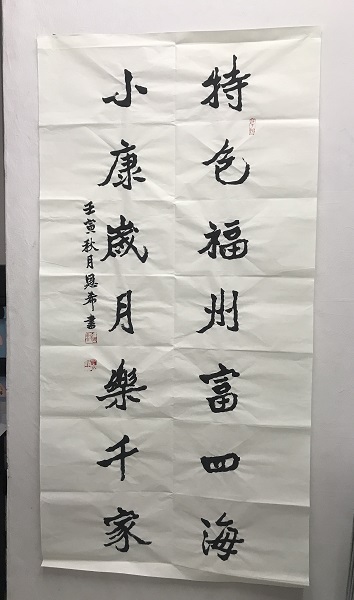 特色福州富四海
小康歲月樂千家
壬寅秋月恩希書